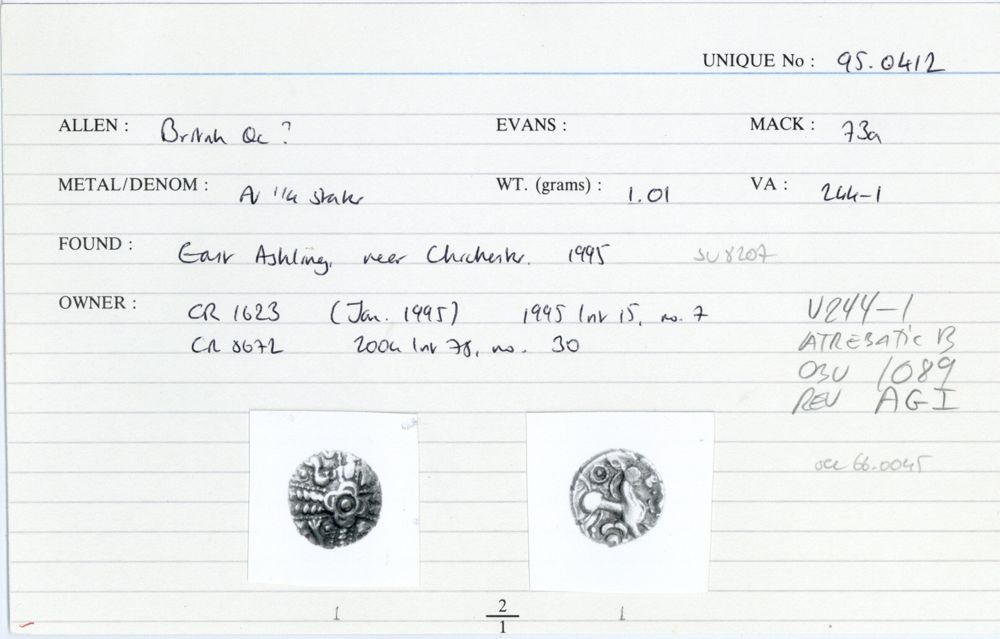 UNIQUE No : 95.0412
ALLEN : British Qc ? EVANS : MACK : 73a
METAL/DENOM : AV 1/4 stater WT. (grams) : 1.01 VA : 244-1
FOUND : East Ashling, near Chichester. 1995 SU 8207
OWNER : CR 1623 (Jan. 1995) 1995 Inv 15, no. 7
CR 8672 2004 Inv 78, no. 30
V244-1
ATREBATIC B
OBV 1089
REV AGI
66.0045
1 2/1 1